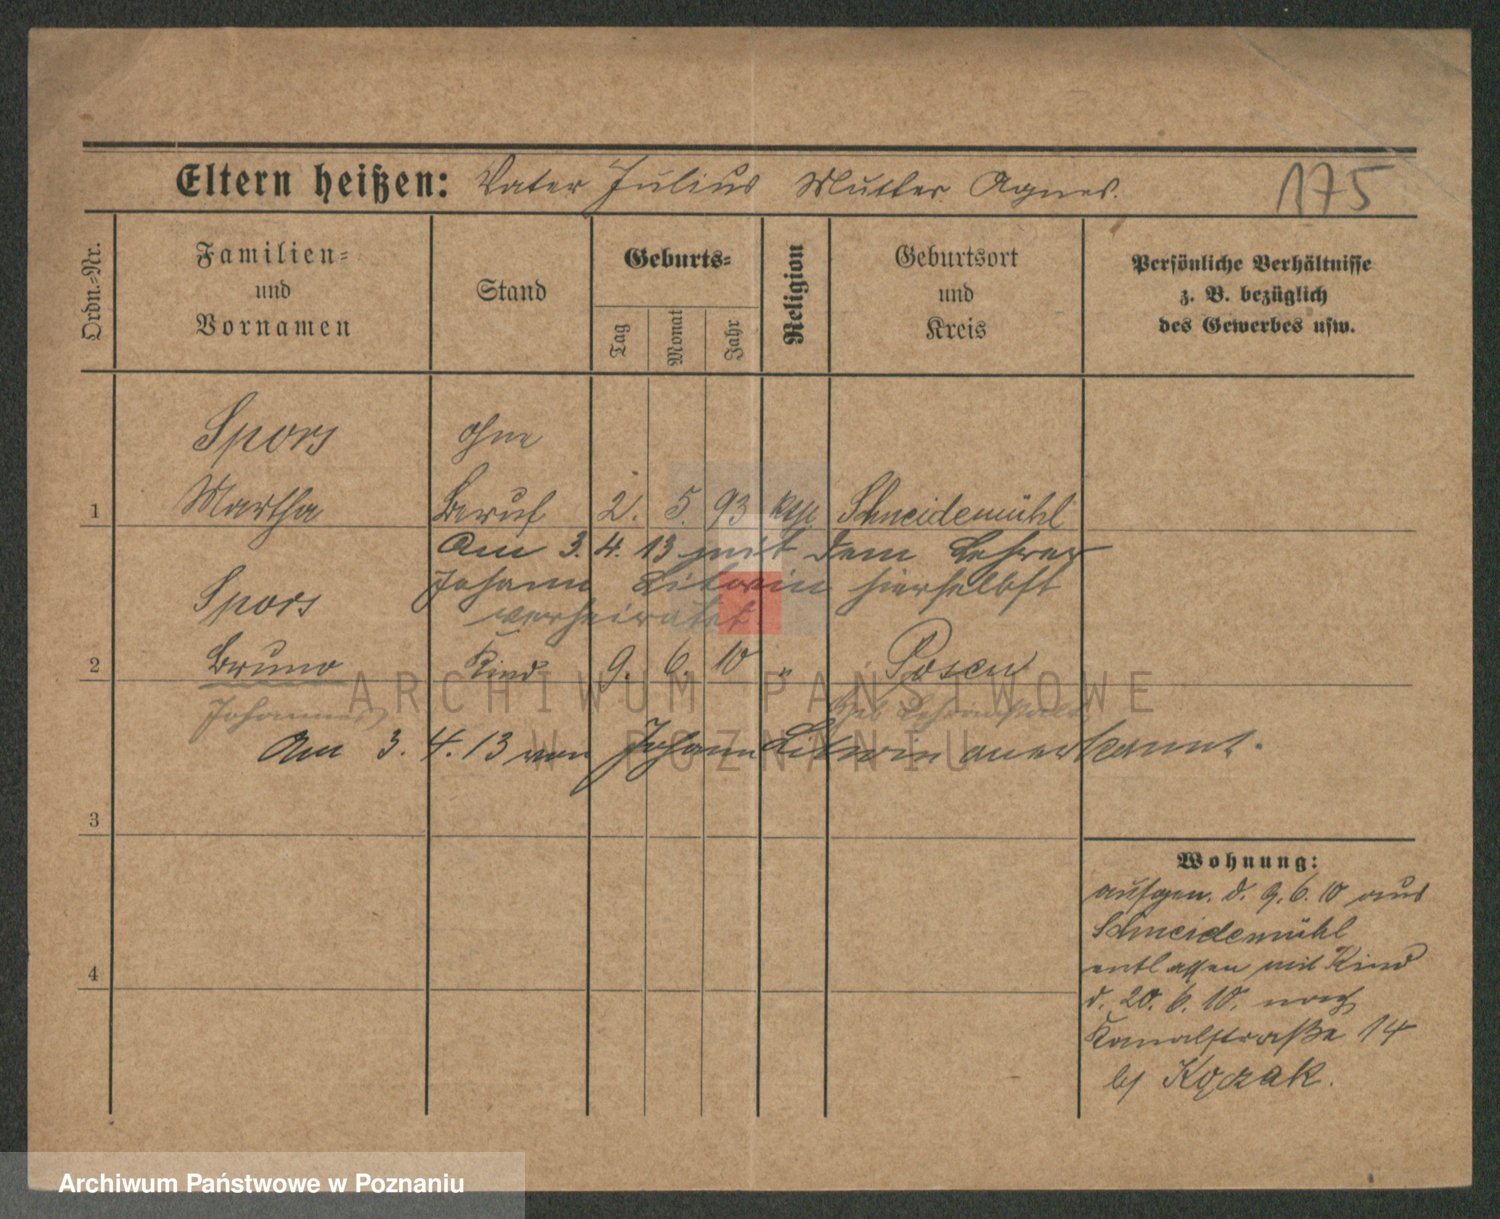 Eltern heißen: Vater Julius Mutter Agnes. 175
Ordn.-Nr.
Familien-
und
Vornamen
Stand
Geburts-
Tag
Monat
Jahr
Religion
Geburtsort
und
Kreis
Persönliche Verhältnisse
z. B. bezüglich
des Gewerbes usw.
Spors ohne
1 Martha Beruf 2. 5. 93 kth Schneidemühl
Am 3. 4. 13 mit dem Lehrer
Johann Litwin hierselbst
verheiratet.
Spors
2 Bruno Kind 9. 6. 10 " Posen
Johannes
Am 3. 4. 13 von Johann Litwin anerkannt.
3
4
Wohnung:
aufgen. d. 9. 6. 10 aus
Schneidemühl
entlassen mit Kind
d. 20. 6. 10. nach
Kanalstraße 14
bei Kozak.
ARCHIWUM PAŃSTWOWE
W POZNANIU
Archiwum Państwowe w Poznaniu